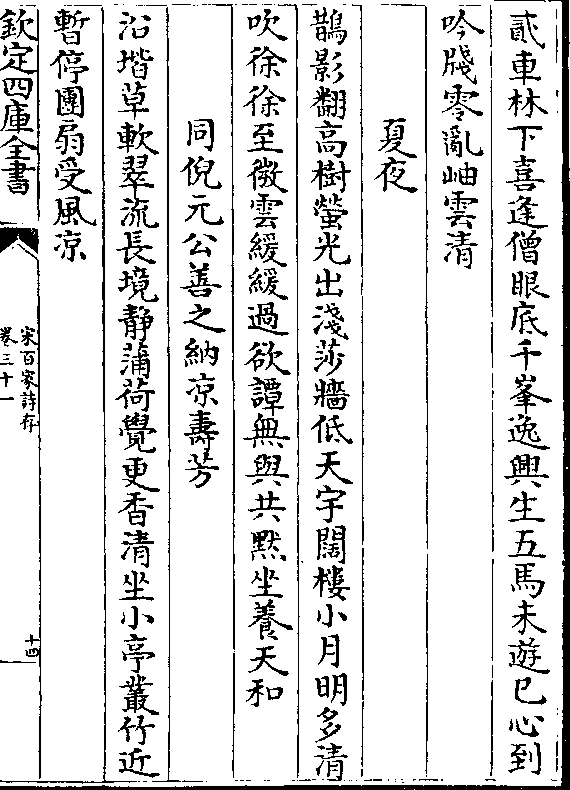 貳車林下喜逢僧眼底千峯逸興生五馬未遊已心到
吟牋零亂岫雲清
夏夜
鵲影翻高樹螢光出淺莎牆低天宇闊樓小月明多清
吹徐徐至微雲緩緩過欲譚無與共黙坐養天和
同倪元公善之納凉夀芳
沿堦草軟翠流長境静蒲荷覺更香清坐小亭叢竹近
暫停團扇受風凉
欽定四庫全書
宋百家詩存
卷三十一
十四